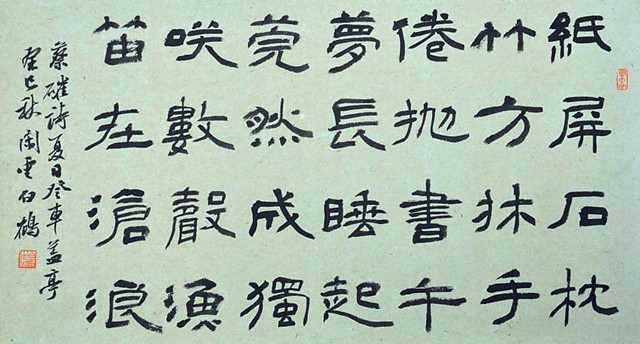 紙屏石枕
竹方牀手
倦抛書午
夢長睡起
莞然成獨
咲數聲漁
笛在滄浪
蔡確詩夏日登車蓋亭
癸巳秋雲白鶴